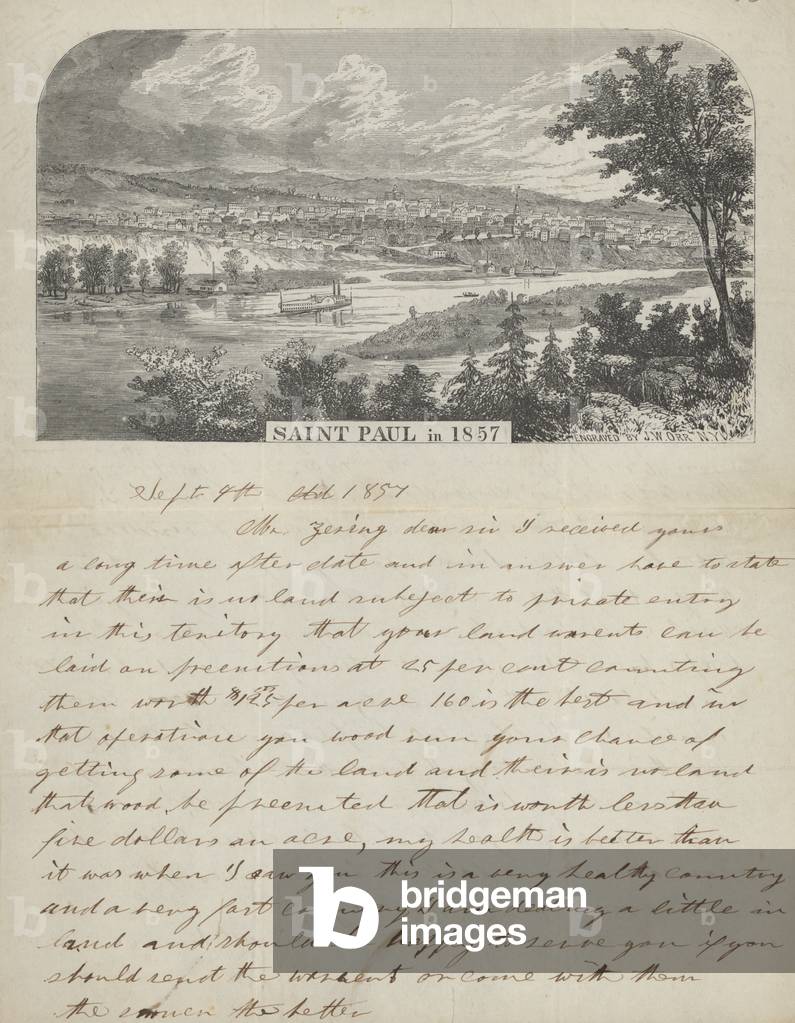 SAINT PAUL in 1857
ENGRAVED BY J.W. ORR N.Y.
Sept 4th 1857
Mr. Zering dear sir I received yours
a long time after date and in answer have to state
that their is no land subject to private entry
in this teritory that your land warents can be
laid on preemtions at 25 per cent counting
them worth $1.25 per acre 160 is the best and in
that operation you wood run your chance of
getting some of the land and their is no land
that wood be preemted that is worth less than
five dollars an acre, my health is better than
it was when I saw you this is a very healthy country
and a very fast dealing a little in
land and should be happy to serve you if you
should send the warents or come with them
the sooner the better
bridgeman
images